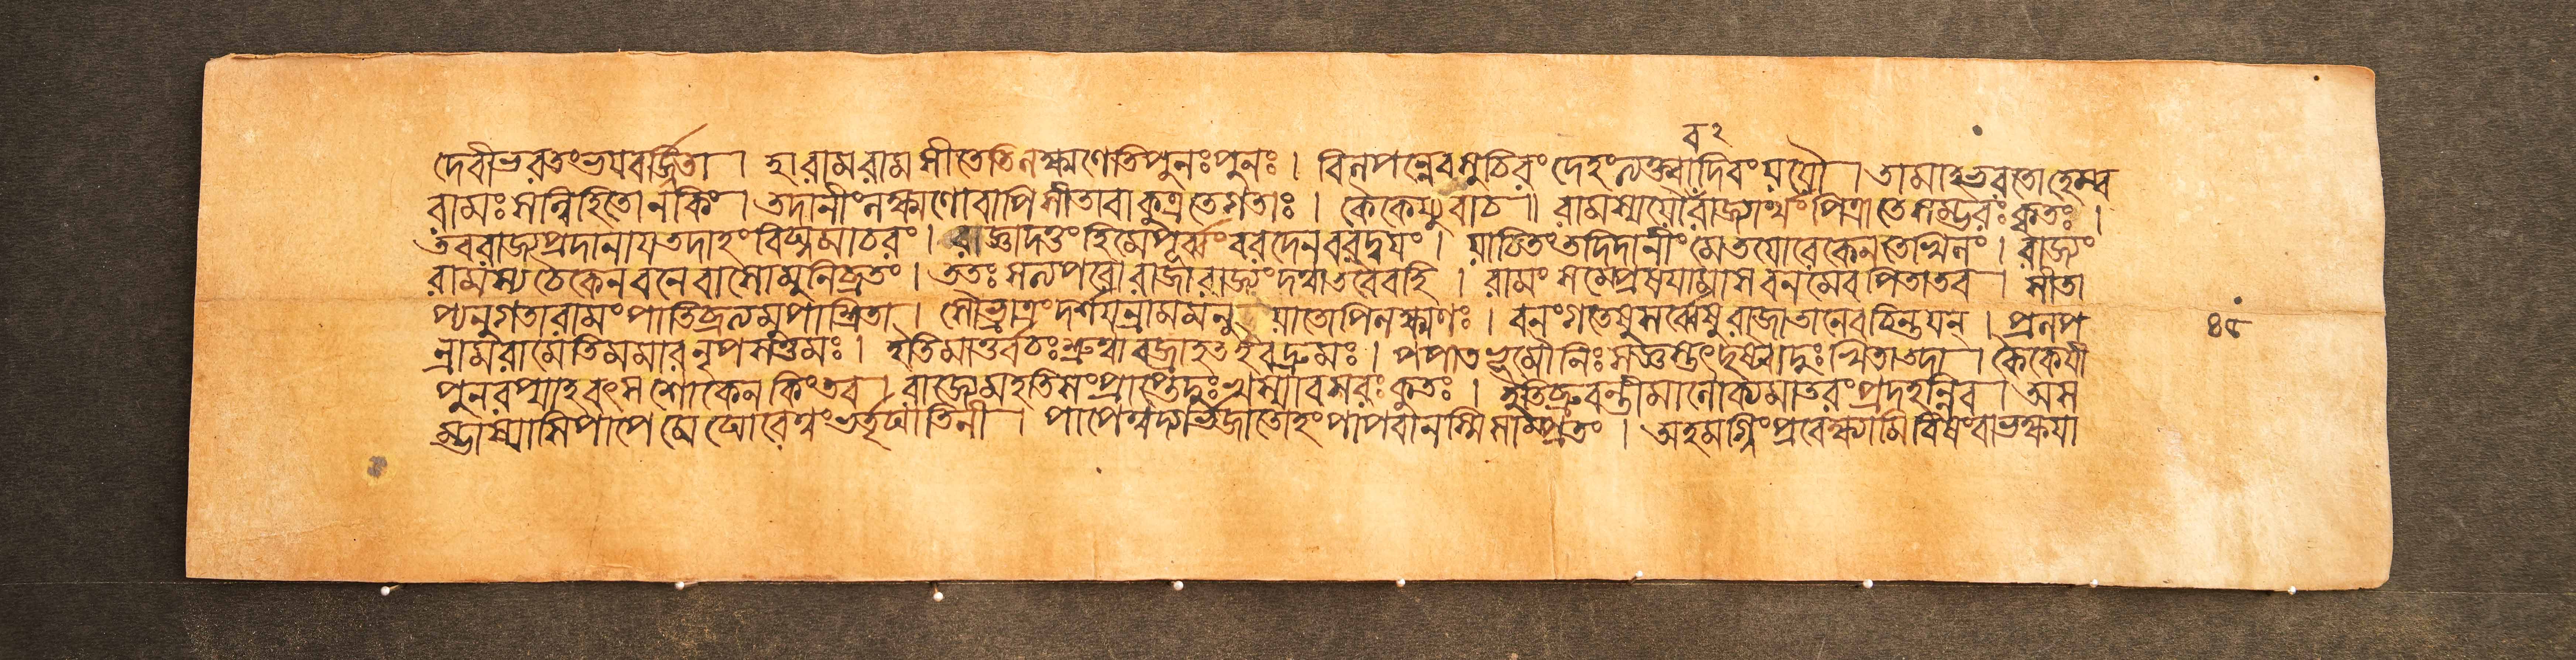 ব২
দেবীভরতংভয়বর্জ্জিতা । হা রাম রাম সীতেতি লক্ষ্মণেতি পুনঃপুনঃ । বিলপন্নেবসুচিরংদেহংত্যক্ত্বাদিবংযযৌ । তামাহভরতোহেম্ব
রামঃসন্নিহিতোনকিং । তদানীংলক্ষ্মণোবাপিসীতাবাকুত্রতেগতাঃ । কৈকেয়্যুবাচ ॥ রামস্যযৌবরাজ্যার্থংপিত্রাতেসম্ভ্রমঃকৃতঃ ।
তবরাজ্যপ্রদানায়তদাহংবিঘ্নমাচরং । রাজ্ঞাদত্তংহিমেপূর্ব্বংবরদেনবরদ্বয়ং । যাচিতংতদিদানীংমেতয়োরেকেনতেখিলং । রাজ্যং
রামস্যচৈকেনবনেবাসোমুনিব্রতং । ততঃসত্যপরোরাজারাজ্যংদত্বাতবৈবহি । রামংসংপ্রেষয়ামাসবনমেবপিতাতব । সীতা
প্যনুগতারামংপাতিব্রত্যমুপাশ্রিতা । সৌভ্রাত্রংদর্শয়ন্রামমনু যাতোপিলক্ষ্মণঃ । বনংগতেষুসর্ব্বেষুরাজাতানেবচিন্তয়ন্ । প্রলপ
ন্রামরামেতিমমারনৃপসত্তমঃ । ইতিমাতুর্বচঃশ্রুত্বাবজ্রাহতইবদ্রুমঃ । পপাতভূমৌনিঃসংজ্ঞস্তংদৃষ্ট্বাদুঃখিতাতদা । কৈকেয়ী
পুনরপ্যাহবৎসশোকেনকিংতব । রাজ্যেমহতিসংপ্রাপ্তেদুঃখস্যাবসরঃকুতঃ । ইতিব্রুবন্তীমালোক্যমাতরংপ্রদহন্নিব । অস
ম্ভাষ্যাসিপাপেমেঘোরেত্বংভর্তৃঘাতিনী । পাপেত্বদ্গর্ভজাতোহংপাপবানস্মিসাম্প্রতং । অহমগ্নিংপ্রবেক্ষ্যামিবিষংবাভক্ষয়া